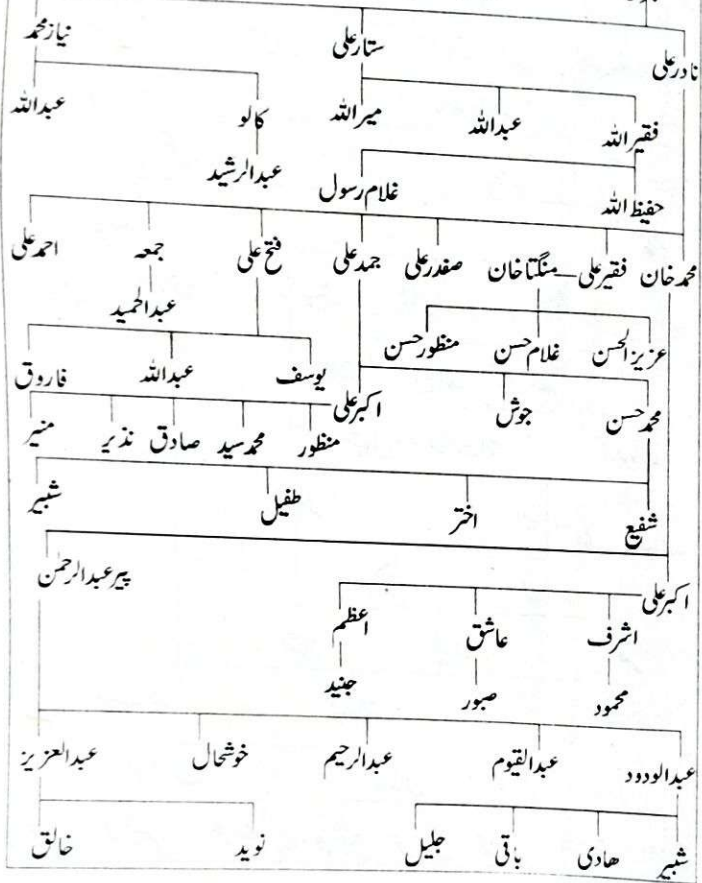 نادر علی ستار علی نیاز محمد
فقیر اللہ عبداللہ میر اللہ کالو عبداللہ
حفیظ اللہ غلام رسول عبدالرشید
محمد خان فقیر علی منگتا خان صفدر علی جمد علی فتح علی جمعہ احمد علی
عبدالحمید
عزیز الحسن غلام حسن منظور حسن یوسف عبداللہ فاروق
محمد حسن جوش اکبر علی
منظور محمد سید صادق نذیر منیر
شفیع اختر طفیل شبیر
اکبر علی پیر عبدالرحمٰن
اشرف عاشق اعظم
محمود صبور جنید
عبدالودود عبدالقیوم عبدالرحیم خوشحال عبدالعزیز
شبیر ھادی باقی جلیل نوید خالق